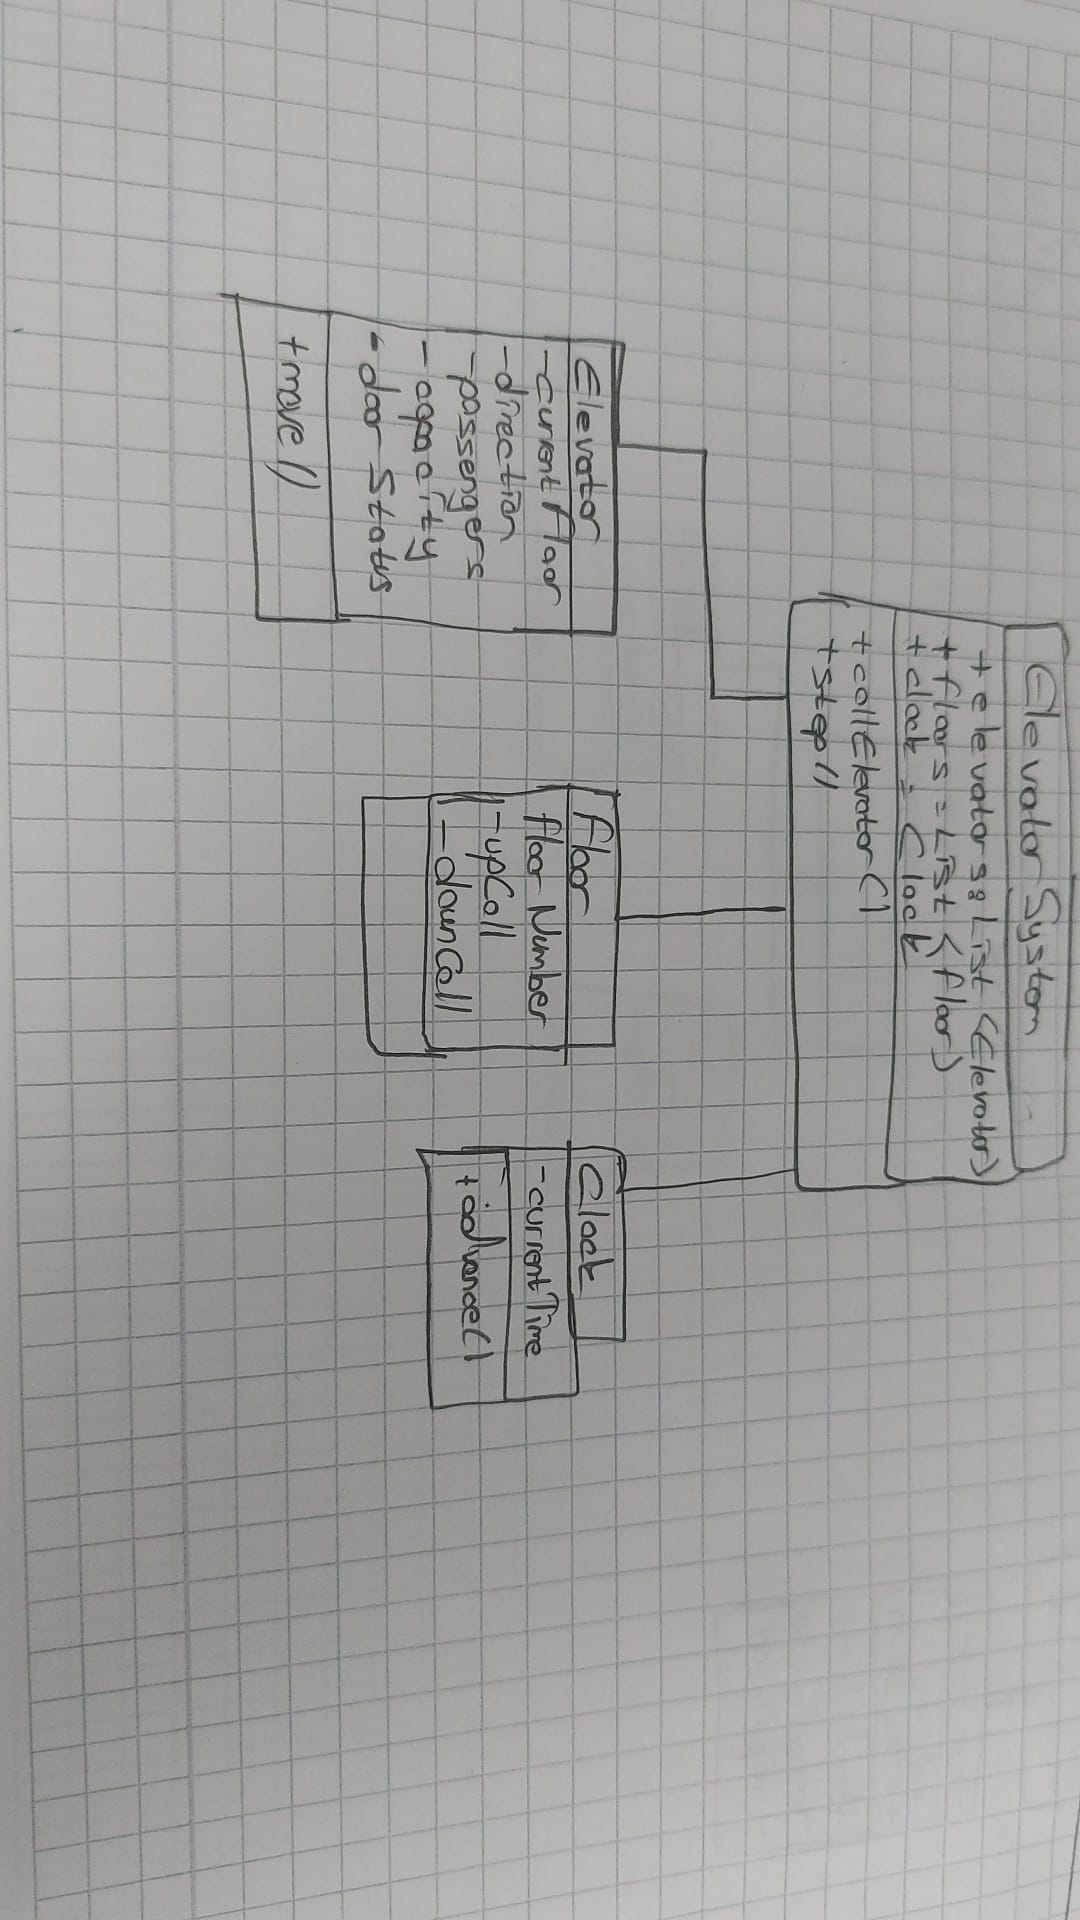 Elevator System
+ elevators: List <Elevator>
+ floors = List <floor>
+ clock = Clock
+ callElevator()
+ step()
Elevator
- current Floor
- direction
- passengers
- capacity
- door Status
+ move()
Floor
floor Number
- upCall
- downCall
Clock
- current Time
+ advance()